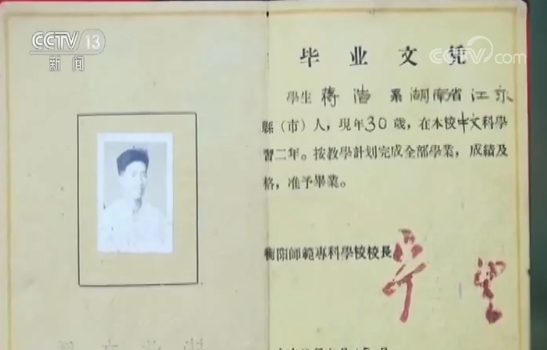 CCTV 13
新闻
CCTV.com
毕业文凭
學生 蒋浩 系湖南省江永
縣（市）人，現年30歲，在本校中文科學
習二年。按教學計划完成全部學業，成績及
格，准予畢業。
衡阳師範專科學校校長